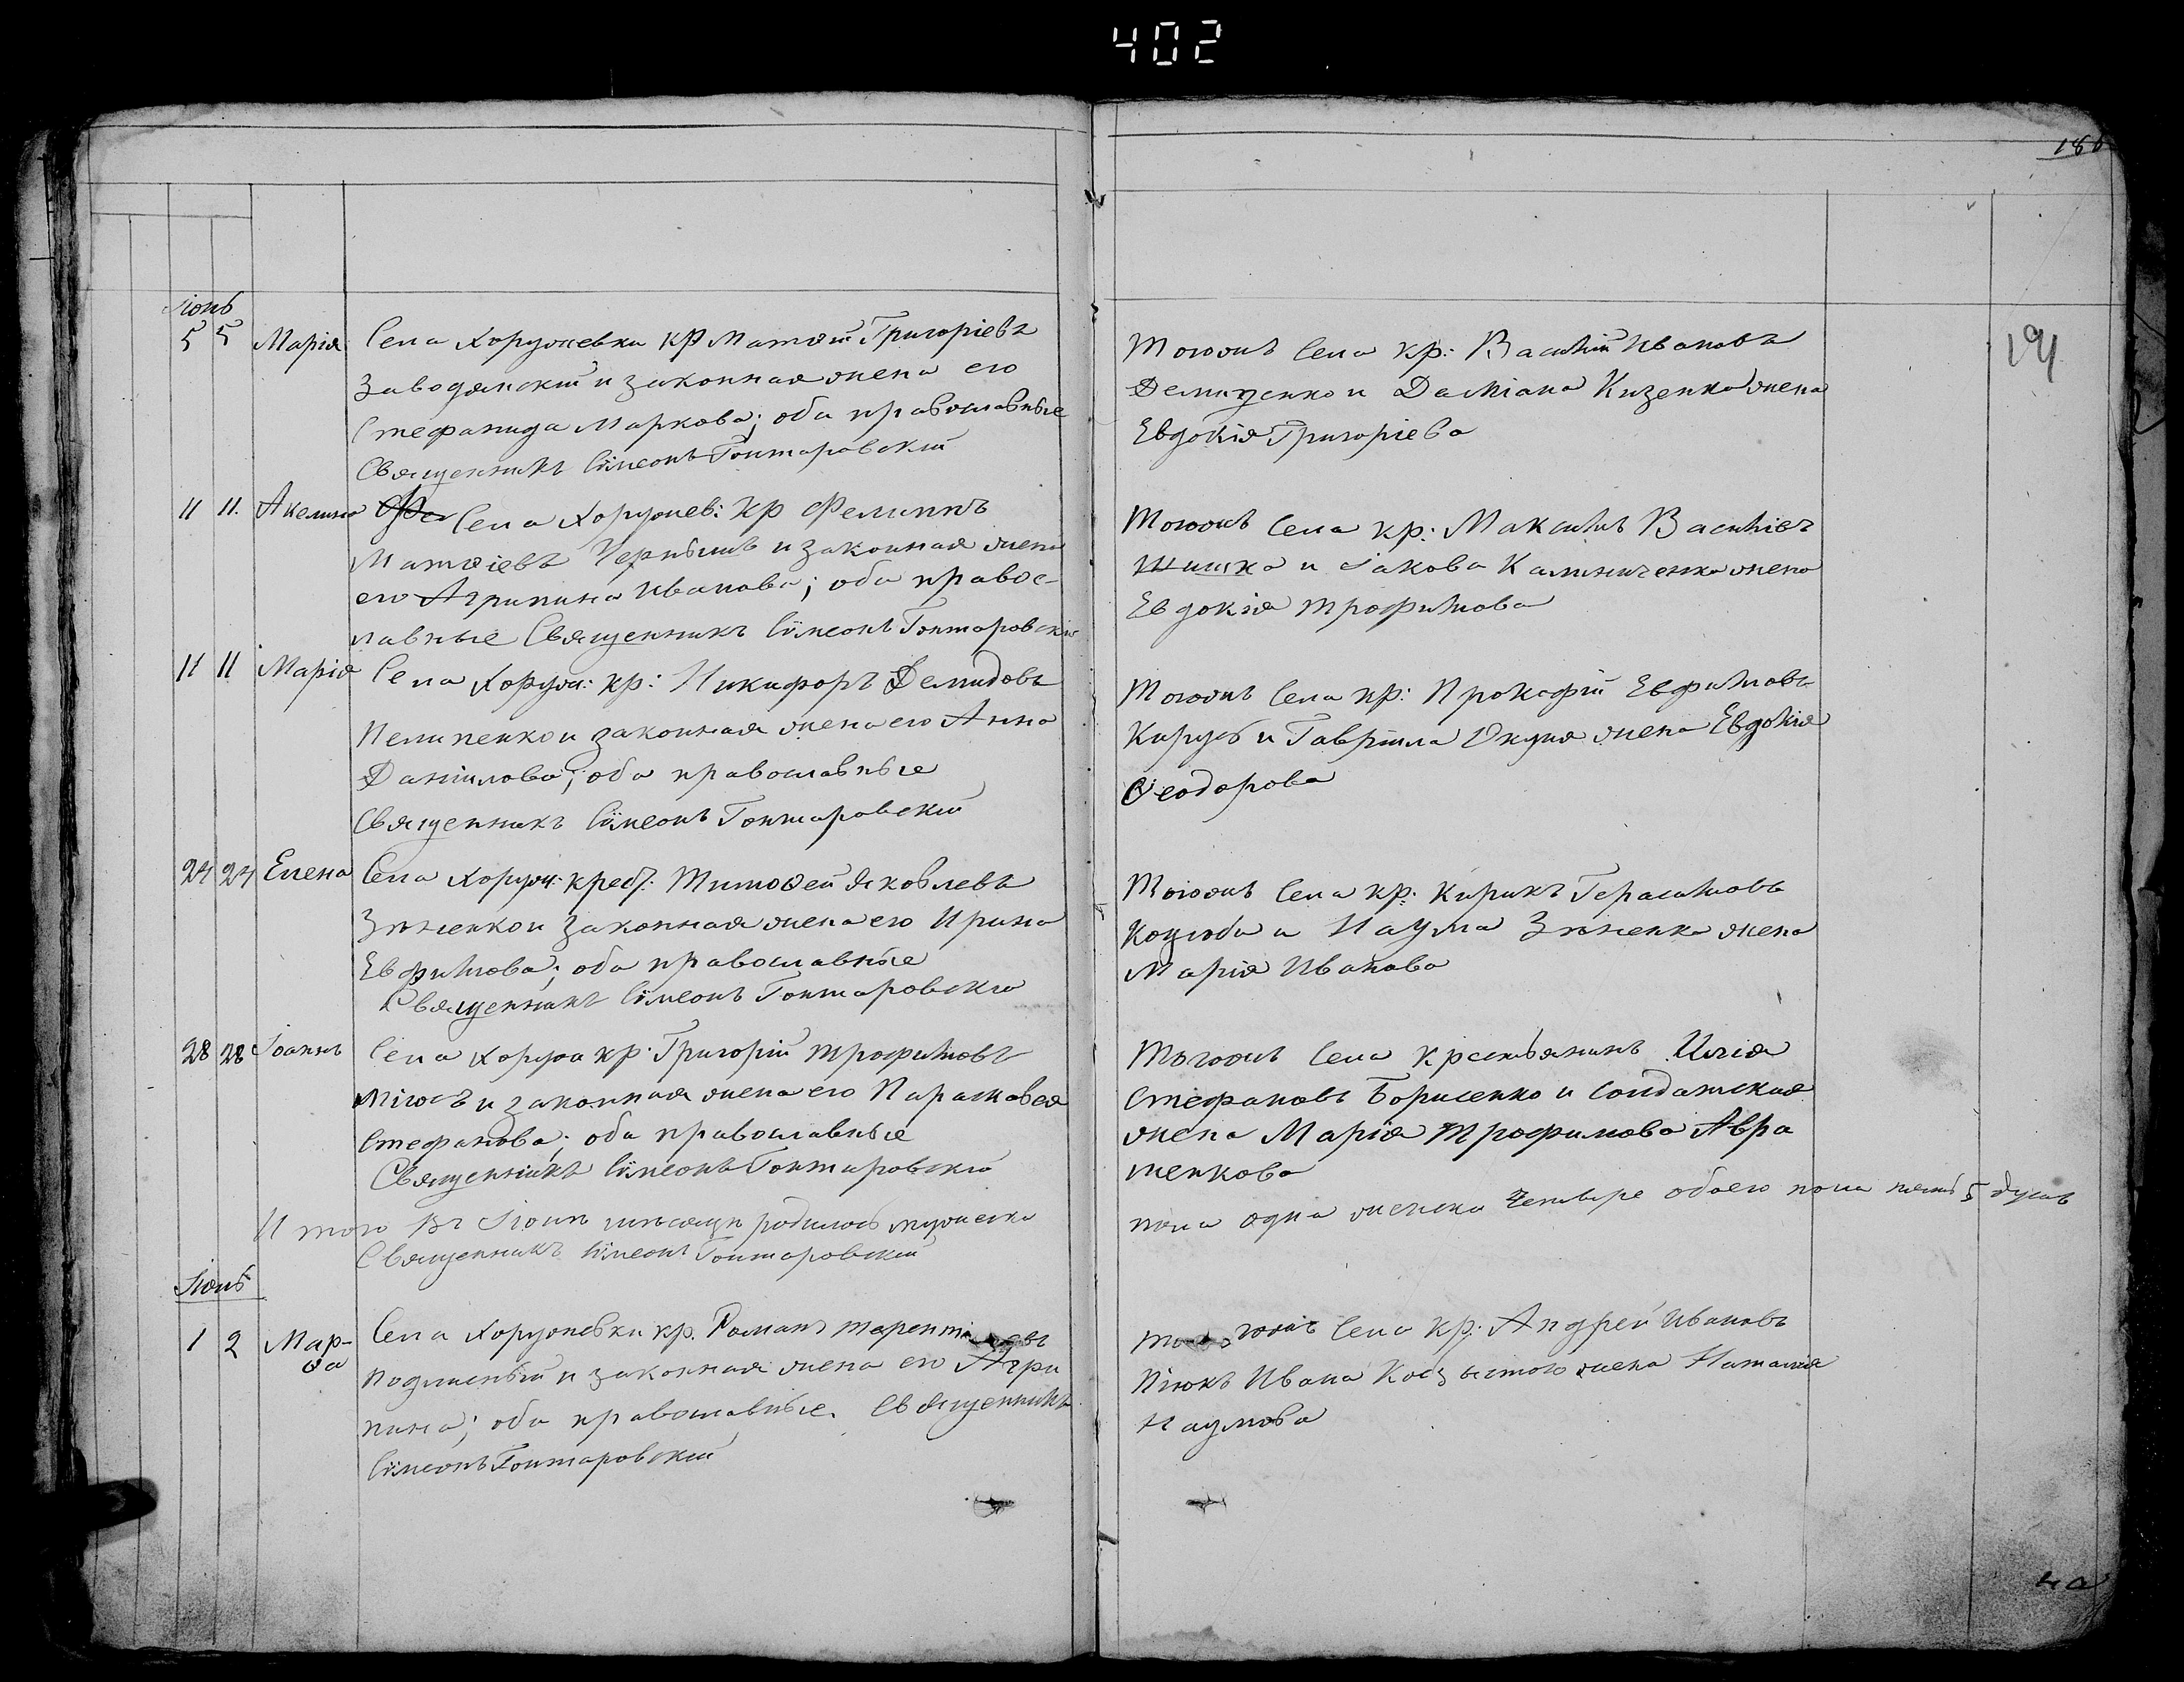 402
186
191
Іюнь
5 5 Марія Села Хоружевки кр Матѳій Григоріевъ
Заводянскій и законная жена его
Стефанида Маркова; оба православные
Священникъ Сѵмеонъ Гонторовскій
Тогожъ Села кр: Василій Ивановъ
Демиденко и Даміана Кизенка жена
Евдокія Григоріева
11 11. Акелина Села Хоружев: кр Фелиппъ
Матѳіевъ Чернышъ и законная жена
его Агрипина Иванова; оба правос-
лавные Священникъ Сѵмеонъ Гонторовскій
Тогожъ Села кр: Максимъ Василіев
Шишка и Іакова Калиниченка жена
Евдокія Трофимова
11 11 Марія Села Хоруж: кр: Никифоръ Демидовъ
Пелипенко и законная жена его Анна
Даніилова; оба православные
Священникъ Сѵмеонъ Гонторовскій
Тогожъ Села кр: Прокофій Евфимовъ
и Гавріила Окуня жена Евдокія
Ѳеодорова
24 24 Елена Села Хоруж: крест: Тимоѳей Яковлевъ
Зѣненко и законная жена его Ирина
Евфимова; оба православные
Священникъ Сѵмеонъ Гонторовскій
Тогожъ Села кр: Кирикъ Герасимовъ
Коцюба и Наума Зѣненка жена
Марія Иванова
28 28 Іоаннъ Села Хоруж кр: Григорій Трофимовъ
и законная жена его Парасковея
Стефанова; оба православные
Священникъ Сѵмеонъ Гонторовскій
Тогожъ Села крестьянинъ Илія
Стефановъ Борисенко и солдатская
жена Марія Трофимова Авра
менкова
И того Въ Іюнѣ мѣсяцѣ родилось мужеска
пола одна женска четыре обоего пола пять 5 душъ
Священникъ Сѵмеонъ Гонторовскій
Іюль
1 2 Мар-
ѳа
Села Хоружевки кр. Романъ
и законная жена его Агри
пина; оба православные. Священникъ
Сѵмеонъ Гонторовскій
тогожъ Села кр: Андрей Ивановъ
Піюкъ Ивана жена Наталія
Наумова